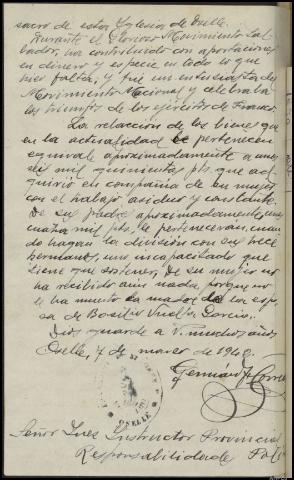 sacro de esta Iglesia de Ovelle.
Durante el Glorioso Movimiento Sal-
vador, ha contribuido con aportaciones
en dinero y especie en todo lo que
hizo falta, y fue un entusiasta del
Movimiento Nacional y celebraba
los triunfos de los ejércitos de Franco.
La relacción de los bienes que
en la actualidad le pertenecen
equivale aproximadamente a unas
seis mil quinientas pts. que ad-
quirio en compañia de su mujer
con el trabajo asiduo y constante.
De sus padres aproximadamente, unas
cuatro mil pts. le perteneceran, cuan-
do hagan la división con sus trece
hermanos, uno incapacitado que
tiene que sostener, De su mujer no
ha recibido aun nada, porque no
le ha muerto la madre de la espo-
sa de Basilio Varela García.
Dios guarde a V. muchos años
Ovelle, 7 de marzo de 1940.
Germán
OVELLE
Señor Juez Instructor Provincial
Responsabilidade Pol